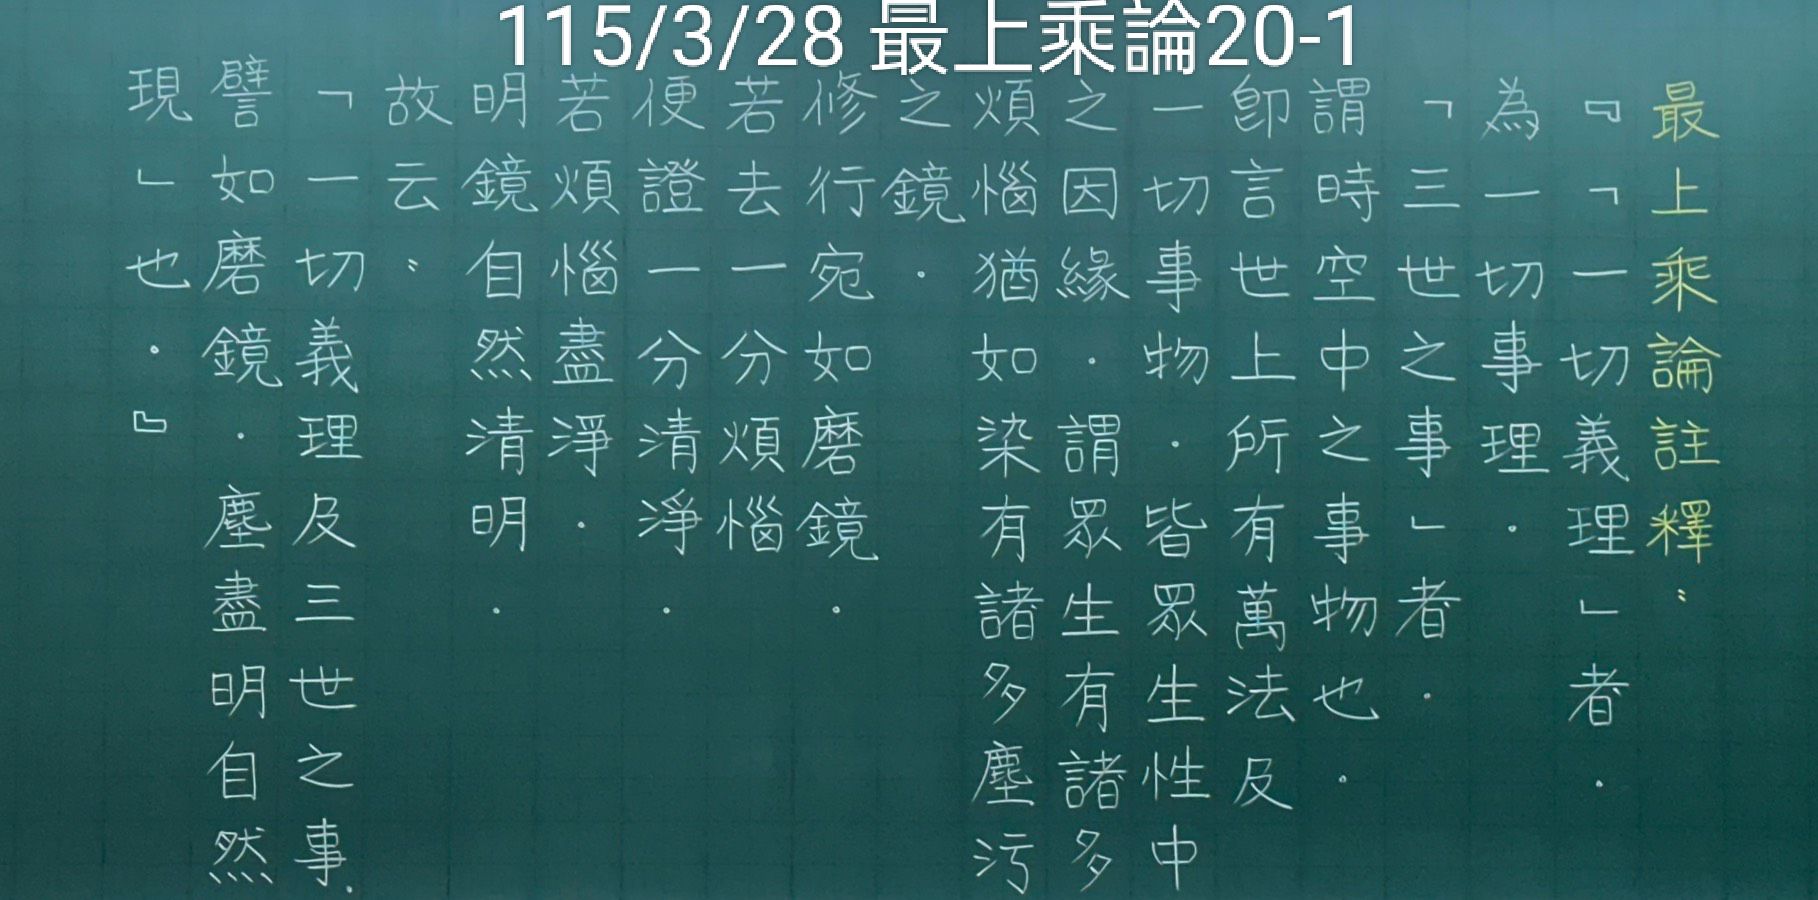 115/3/28 最上乘論20-1
最上乘論註釋：
『「一切義理」者．
為一切事理．
「三世之事」者．
謂時空中之事物也．
卽言世上所有萬法及
一切事物．皆眾生性中
之因緣．謂眾生有諸多
煩惱猶如染有諸多塵污
之鏡．
修行宛如磨鏡．
若去一分煩惱
便證一分清淨．
若煩惱盡淨．
明鏡自然清明．
故云：
「一切義理及三世之事．
譬如磨鏡．塵盡明自然
現」也．』